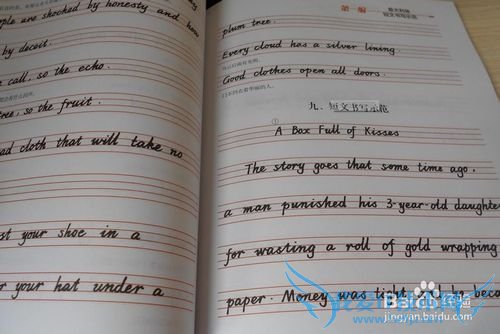 ple are shocked by honesty and how
by deceit.
call, so the echo.
tree, so the fruit.
ad cloth that will take no
st your shoe in a
r your hat under a
plum tree.
Every cloud has a silver lining
Good clothes open all doors.
九、短文书写示范
①
A Box Full of Kisses
The story goes that some time ago,
a man punished his 3-year-old daughte
for wasting a roll of gold wrapping
paper. Money was tight and he beca
Baidu 经验
jingyan.baidu.com